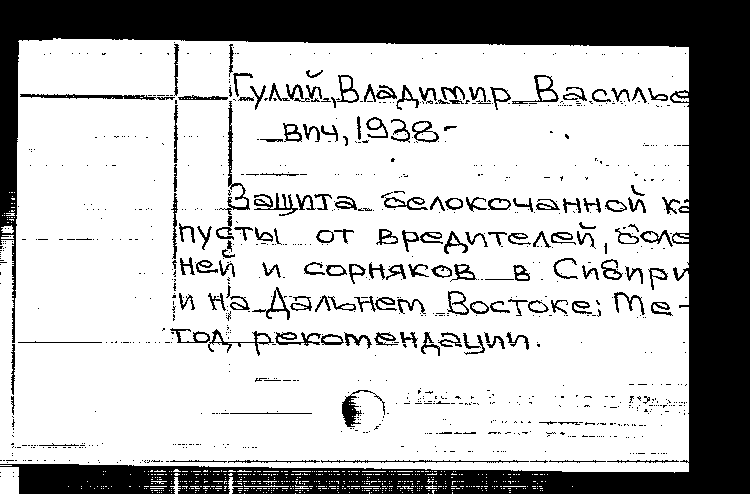 Гулий, Владимир Василье
вич, 1938-
Защита белокочанной ка
пусты от вредителей, боле
ней и сорняков в Сибири
и на Дальнем Востоке: Ме-
тод. рекомендации.